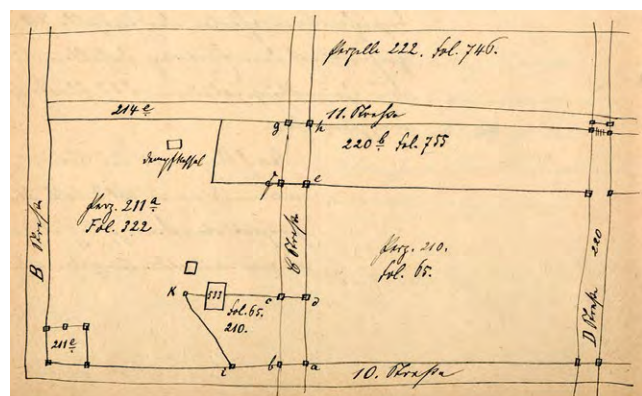 Parzelle 222. Fol. 746.
214 e
11. Straße
g
h
220 b Fol. 755
Dampfkessel
f
e
Parz. 211 a
Fol. 322
B Straße
C Straße
Parz. 210.
Fol. 65.
220
D Straße
K
533
Fol. 65.
210.
c
d
211 e
i
b
a
10. Straße